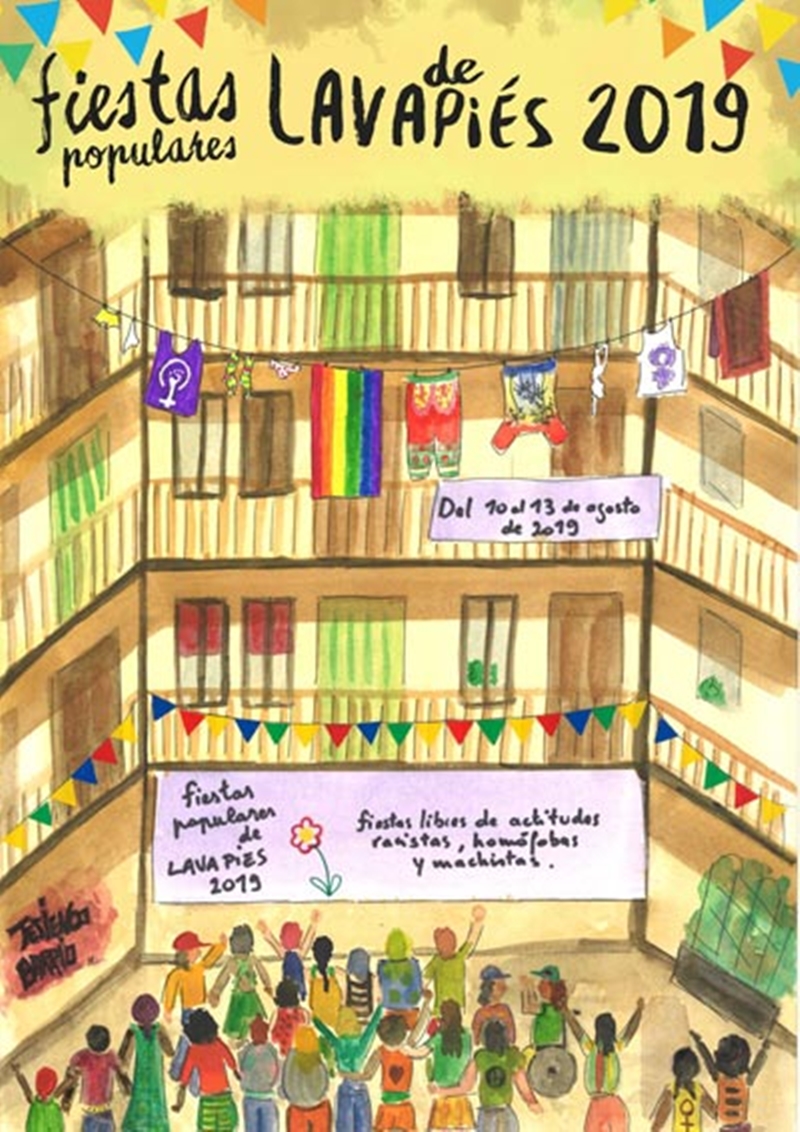 fiestas
populares
de
LAVAPIÉS 2019
Del 10 al 13 de agosto
de 2019
fiestas
populares
de
LAVAPIES
2019
fiestas libres de actitudes
racistas, homófobas
y machistas.
TEJIENDO
BARRIO